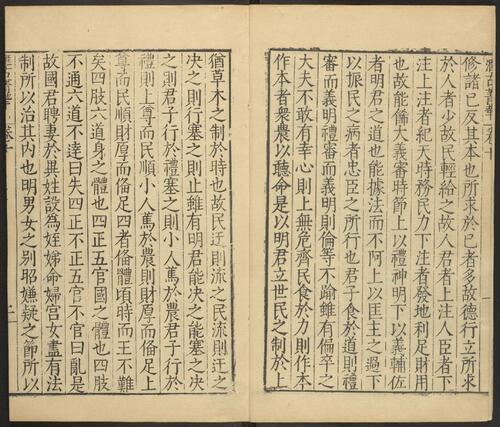 修諸已反其本也所求於已者多故德行立所求
於人者少故民輕給之故人君者上注人臣者下
注上注者紀天時務民力下注者發地利足財用
也故能飾大義審時節上以禮神明下以義輔佐
者明君之道也能據法而不阿上以匡主之過下
以振民之病者忠臣之所行也君子食於道則禮
審而義明禮審而義明則倫等不踰雖有偏卒之
大夫不敢有幸心則上無危齊民食於力則作本
作本者衆農以聽命是以明君立世民之制於上
猶草木之制於時也故民迂則流之民流則迂之
決之則行塞之則止雖有明君能決之能塞之決
之則君子行於禮塞之則小人篤於農君子行於
禮則上尊而民順小人篤於農則財厚而備足上
尊而民順財厚而備足四者備體頃時而王不難
矣四肢六道身之體也四正五官國之體也四肢
不通六道不達曰失四正不正五官不官曰亂是
故國君聘妻於異姓設為姪娣命婦宮女盡有法
制所以治其内也明男女之别昭嫌疑之節所以